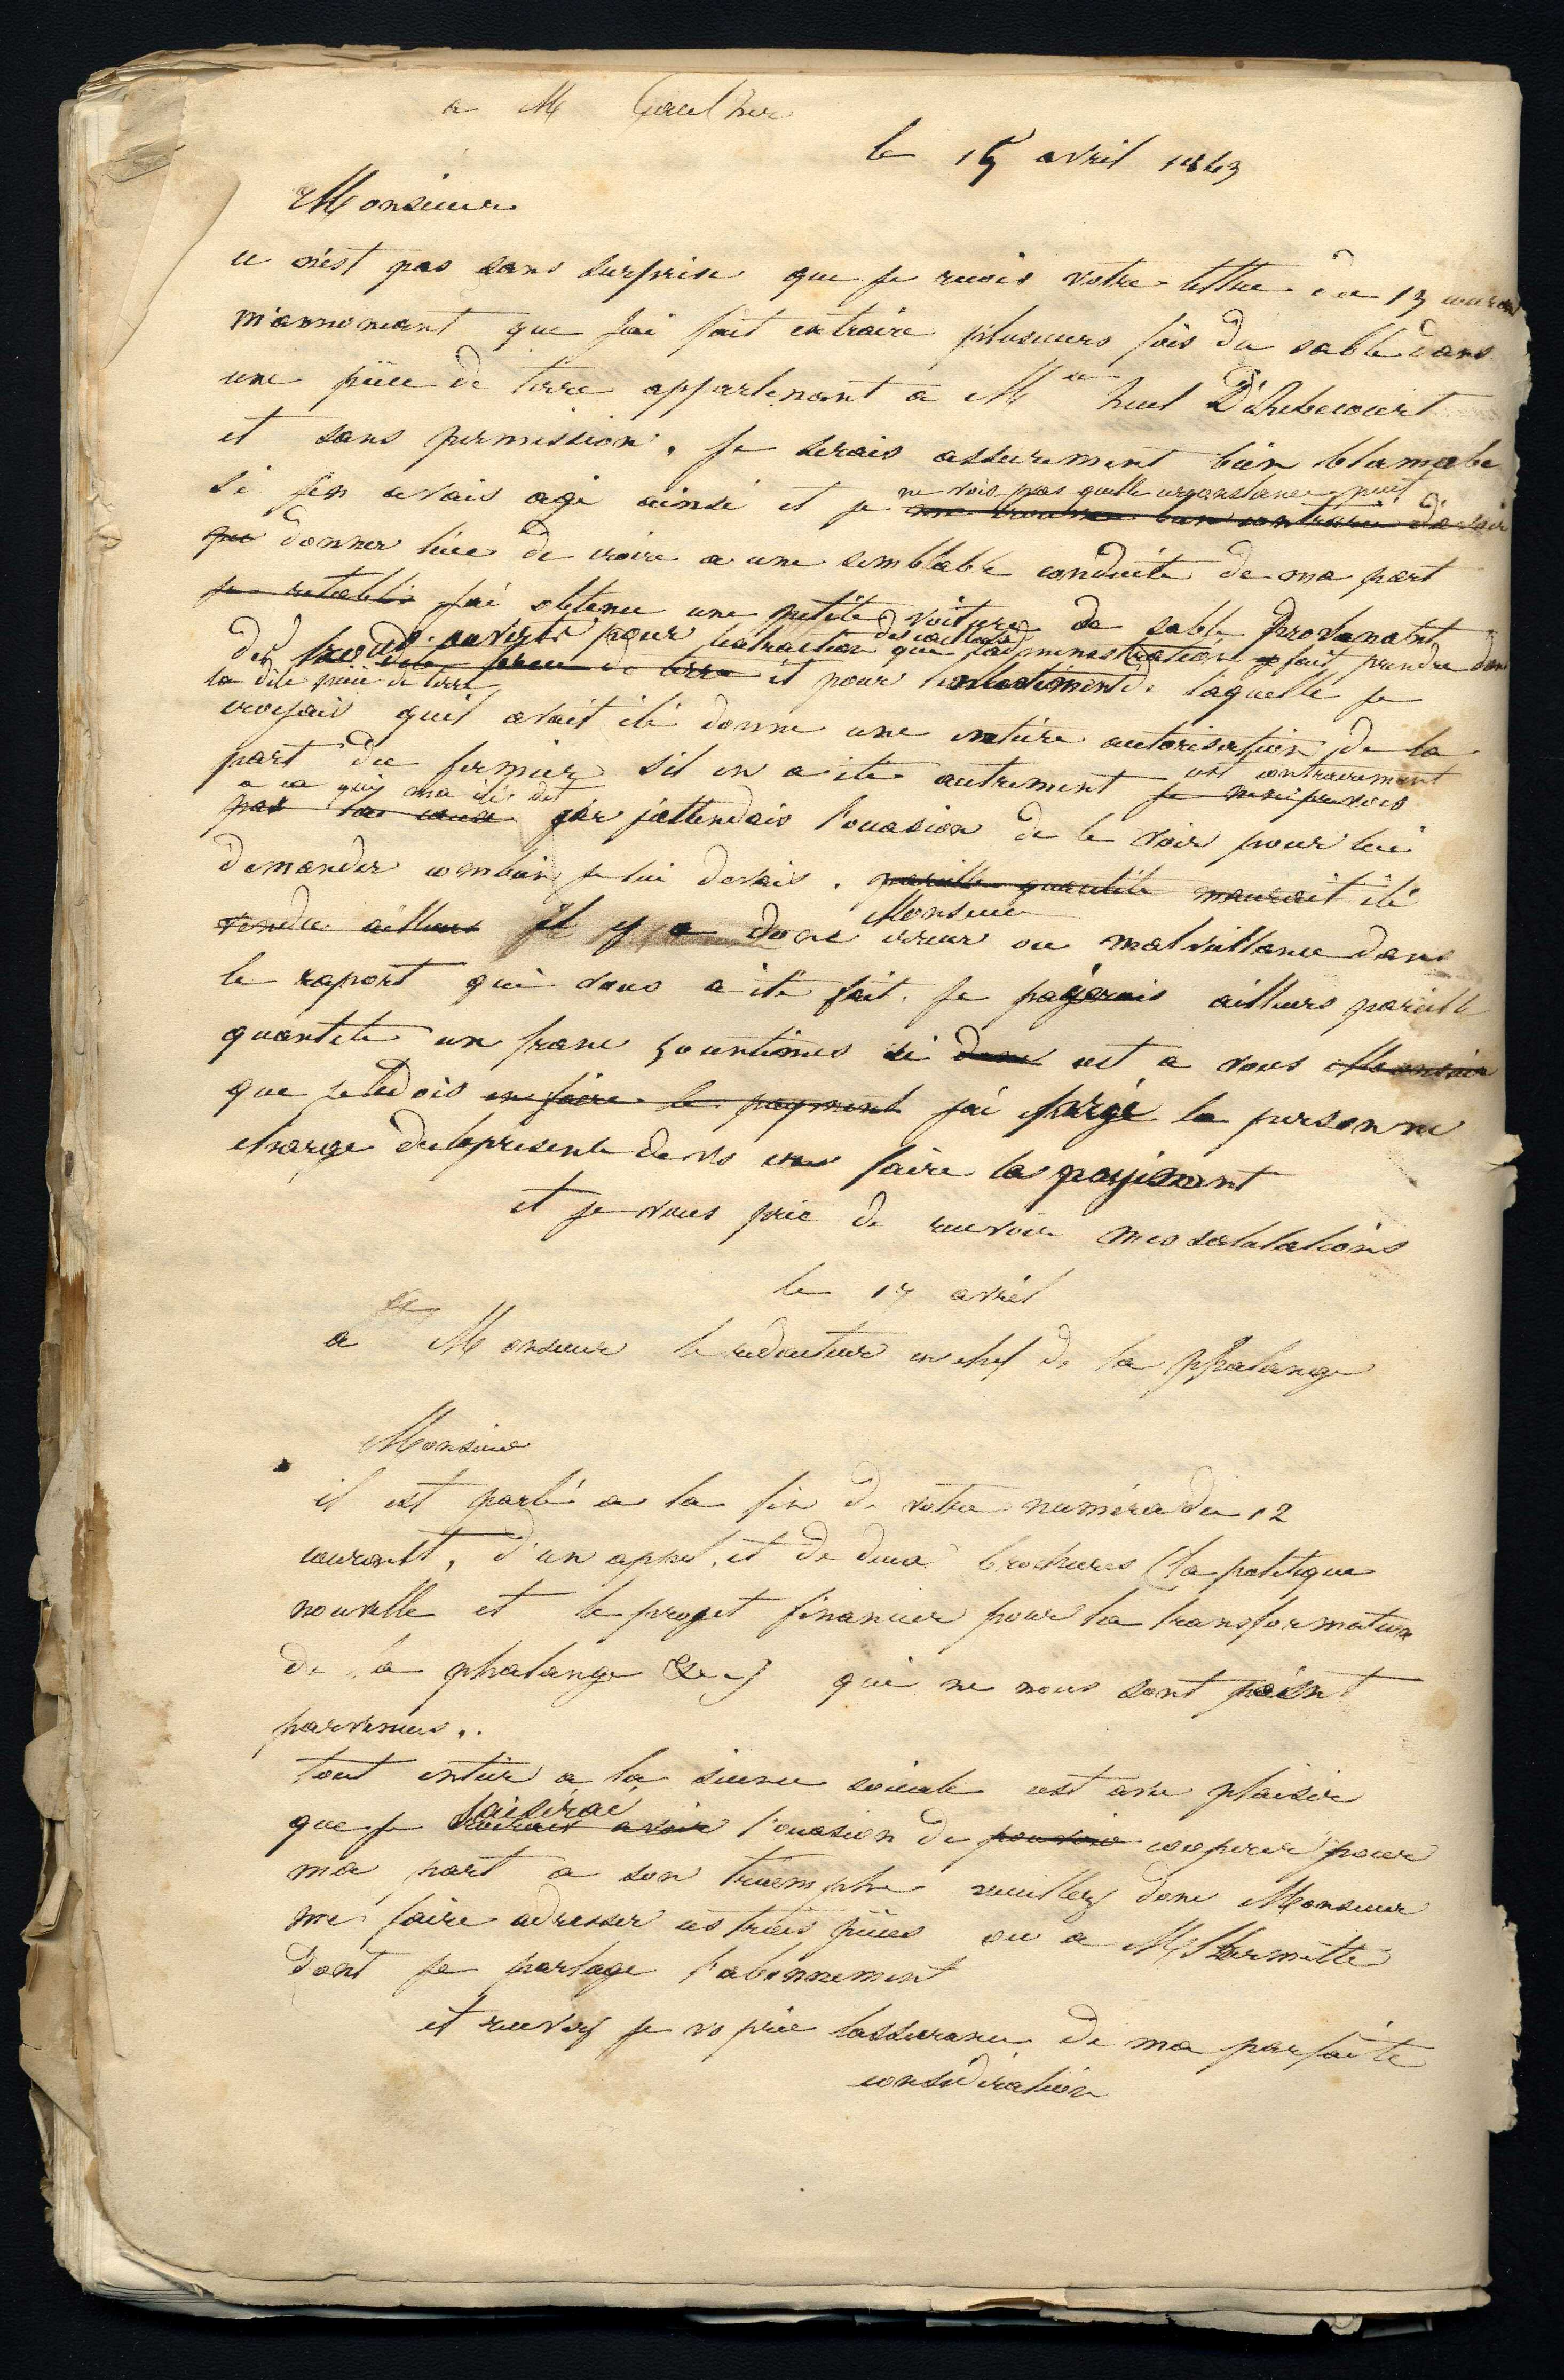 a M Gaulther
le 15 avril 1843
Monsieur
ce n'est pas sans surprise que je recois votre lettre du 13 courant
m'annoncant que jai fait extraire plusieurs fois du sable dans
une piece de terre appartenant a M huet D'
et sans permission. je serais assurement bien blamable
si j'en avais agi ainsi et je ne vois pas quelle circonstance peut
me trouve bien contrarie d'avoir
pu donner lieu de croire a une semblable conduite de ma part
je retablis jai obtenu une petite voiture de sable provenant
des trous ouverts pour lextraction des cailloux que ladministration fait prendre dans
la dite piece de terre et pour laquelle je
croyais quil avait été donné une entiere autorisation de la
part du fermier sil en a été autrement cest contrairement
a ce qui ma été dit je
pas la cause car jattendais l'occasion de le voir pour lui
demander combien je lui devais. pareille quantité maurait été
vendue ailleurs il y a donc Monsieur erreur ou malveillance dans
le raport qui vous a été fait. je payerais ailleurs pareille
quantite un franc 50 centimes si donc cest a vous Monsieur
que je le dois en faire le payment jai chargé la personne
charge de la presente de vs en faire le payement
et je vous prie de recevoir mes salutations
le 17 avril
a Monsieur le redacteur en chef de la phalange
Monsieur
il est parlé a la fin de votre numéro du 12
courant, d'un appel, et de deux brochures (la politique
nouvelle et le projet financier pour la transformation
de la phalange &c) qui ne nous sont point
parvenus..
tout entier a la sience sociale cest avec plaisir
que je saisirai
voudrais avoir l'occasion de pouvoir cooperer pour
ma part a son triomphe veuillez donc Monsieur
me faire adresser ces trois pieces ou a M Lhermitte
dont je partage l'abonnement
et recevez je vs prie lassurance de ma parfaite
consideration